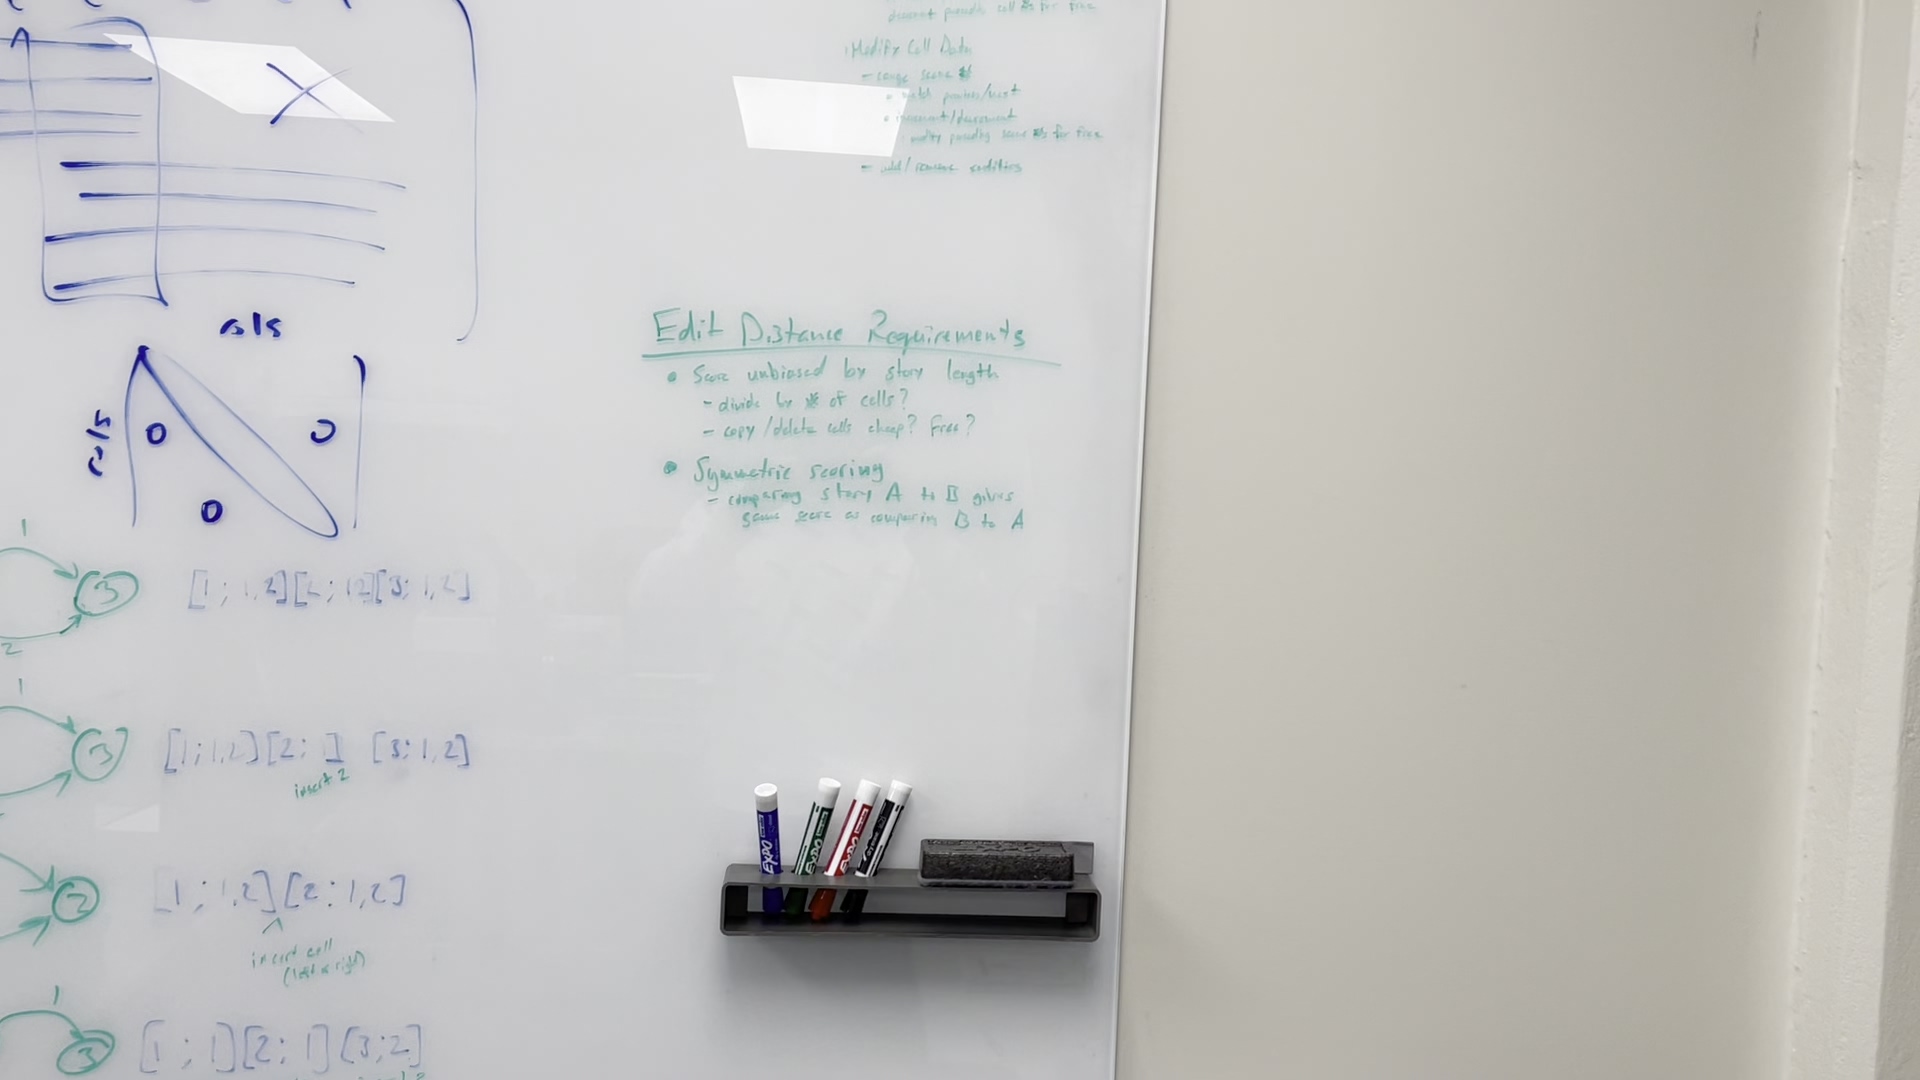 decrement pseudo cell #s for free
Modify Cell Data
- scene #
match previous/next
increment/decrement
modify scene #s for free
- add/remove
cols
cols
0
0
0
Edit Distance Requirements
• Score unbiased by story length
- divide by # of cells?
- copy/delete cells cheap? Free?
• Symmetric scoring
- comparing story A to B gives
same score as comparing B to A
1
3
2
[1; 1,2][2; 1,2][3; 1,2]
1
3
[1; 1,2][2; 1] [3; 1,2]
insert 2
2
[1; 1,2][2: 1,2]
^
insert cell
(left or right)
1
3
[1; 1][2; 1][3;2]
EXPO
EXPO
EXPO